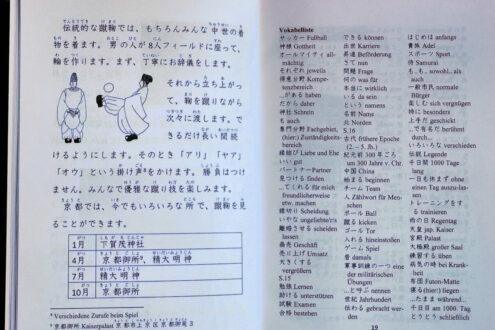 伝統的な蹴鞠では、もちろんみんな中世の着
物を着ます。男の人が8人フィールドに座って、
輪を作ります。まず、丁寧にお辞儀をします。
それから立ち上がっ
て、鞠を蹴りながら
次々に渡します。で
きるだけ長い間続
けるようにします。そのとき「アリ」「ヤア」
「オウ」という掛け声⁸をかけます。勝負はつけ
ません。みんなで優雅な蹴り技を楽しみます。
京都では、今でもいろいろな所で、蹴鞠を見
ることができます。
1月 下賀茂神社
4月 京都御所⁹、精大明神
7月 精大明神
10月 京都御所
⁸ Verschiedene Zurufe beim Spiel
⁹ 京都御所 Kaiserpalast 京都市上京区京都御苑3
Vokabelliste
サッカー Fußball
神様 Gottheit
オールマイティ all-
mächtig
それぞれ jeweils
得意分野 Kompe-
tenzbereich
...がある haben
だから daher
神社 Schrein
も auch
専門分野 Fachgebiet,
(hier:) Zuständigkeits-
bereich
縁結び Liebe und Ehe
いい gut
パートナー Partner
見つける finden
...てくれる für mich
freundlicherweise
etw. machen
縁切り Scheidung
いやな ungeliebte(r)
離婚させる scheiden
lassen
商売 Geschäft
売上げ Umsatz
大きくする
vergrößern
S.15
勉強 Lernen
助ける unterstützen
試験 Examen
合格 bestehen
できる können
出世 Karriere
昇進 Beförderung
質問 Frage
何の was für
本当に wirklich
いる da sein
という namens
名前 Name
北 Norden
S.16
古代 frühere Epoche
(2.–5. Jh.)
紀元前300年ごろ
um 300 v. Chr.
中国 China
始まる beginnen
チーム Team
人 Zählwort für Men-
schen
ボール Ball
蹴る kicken
ゴール Tor
入れる hineinstoßen
ゲーム Spiel
昔 damals
軍事訓練の一つ eine
der militärischen
Übungen
...と呼ぶ nennen
世紀 Jahrhundert
伝わる gebracht wer-
den
はじめは anfangs
貴族 Adel
スポーツ Sport
侍 Samurai
も...も... sowohl... als
auch
一般市民 normale
Bürger
楽しむ sich vergnügen
特に besonders
上手だ geschickt
...で有名だ berühmt
durch...
いろいろな verschieden
伝説 Legende
千日間 1000 Tage
lang
一日も休まず ohne
einen Tag auszulas-
sen
トレーニングをす
る trainieren
雨の日 Regentag
天皇 jap. Kaiser
宮殿 Palast
大階段 großer Saal
練習する üben
病気の時 bei Krank-
heit
布団 Futon-Matte
寝る (hier:) liegen
...たまま während...
千日 am 1000. Tag
とうとう schließlich
19